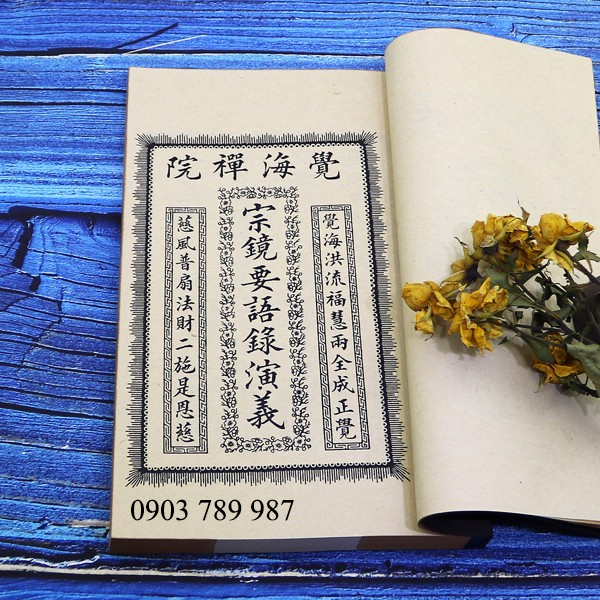 覺海禪院
覺海洪流福慧兩全成正覺
宗鏡要語錄演義
慈風普扇法財二施是恩慈
0903 789 987